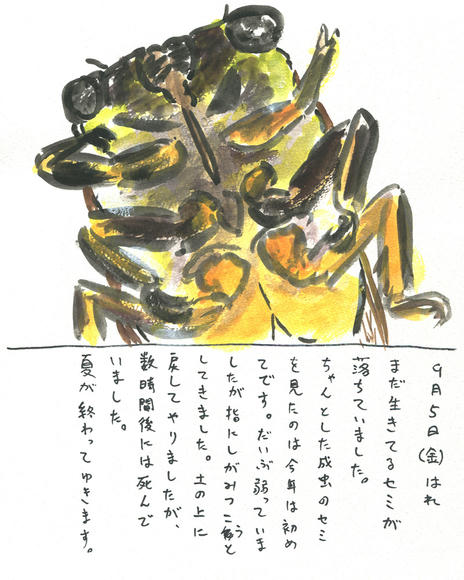 9月5日(金)はれ
まだ生きてるセミが
落ちていました。
ちゃんとした成虫のセミ
を見たのは今年は初め
てです。だいぶ弱っていま
したが指にしがみつこうと
してきました。土の上に
戻してやりましたが、
数時間後には死んで
いました。
夏が終わってゆきます。